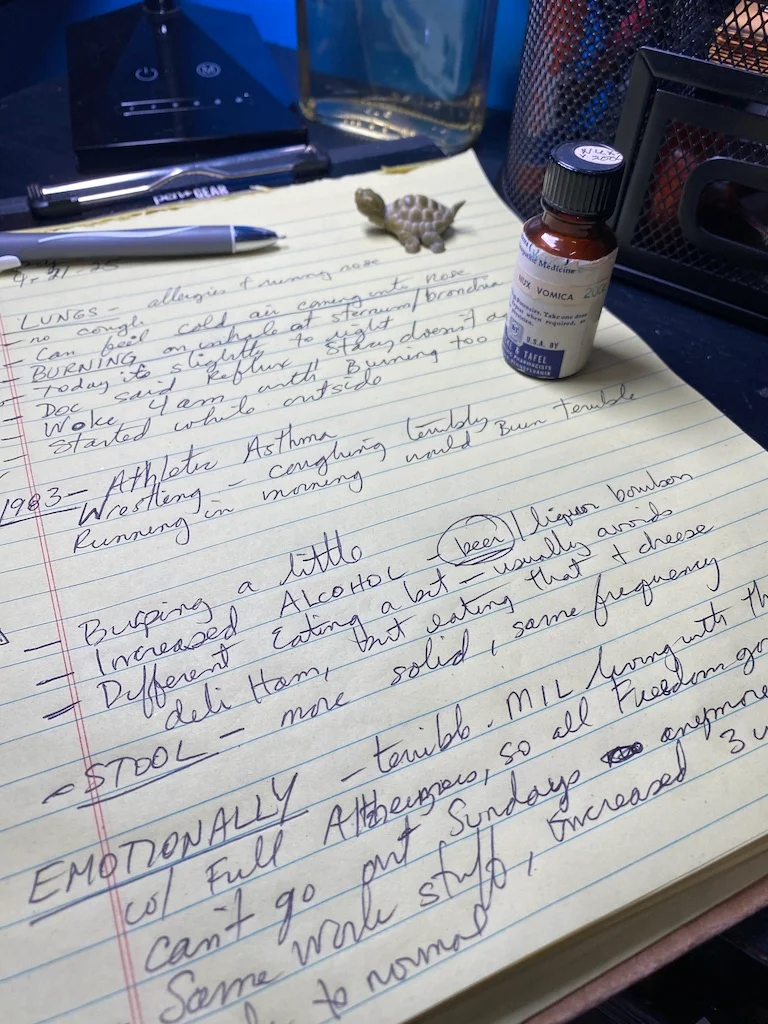 pen+GEAR
NUX
200
Medicine
NUX VOMICA 200
U.S.A. BY
& TAFEL
4-21-25
LUNGS - allergies + runny nose
- no cough
- Can feel cold air coming into nose
- BURNING on inhale at sternum/bronchia
- Today its slightly to right
- Doc said Reflux, Stacy doesn't
- Woke 4am with Burning too
- Started while outside
1983 - Athletic Asthma
Wrestling - coughing terribly
Running in morning would Been terrible
- Burping a little
- Increased ALCOHOL - beer / liquor bourbon
- Different Eating a bit - usually avoids
deli Ham, but eating that + cheese
- STOOL - more solid, same frequency
EMOTIONALLY - terrible. MIL living with
w/ Full Alzheimers, so all Freedom
can't go out Sundays anymore
Same work stuff, increased 3
to normal